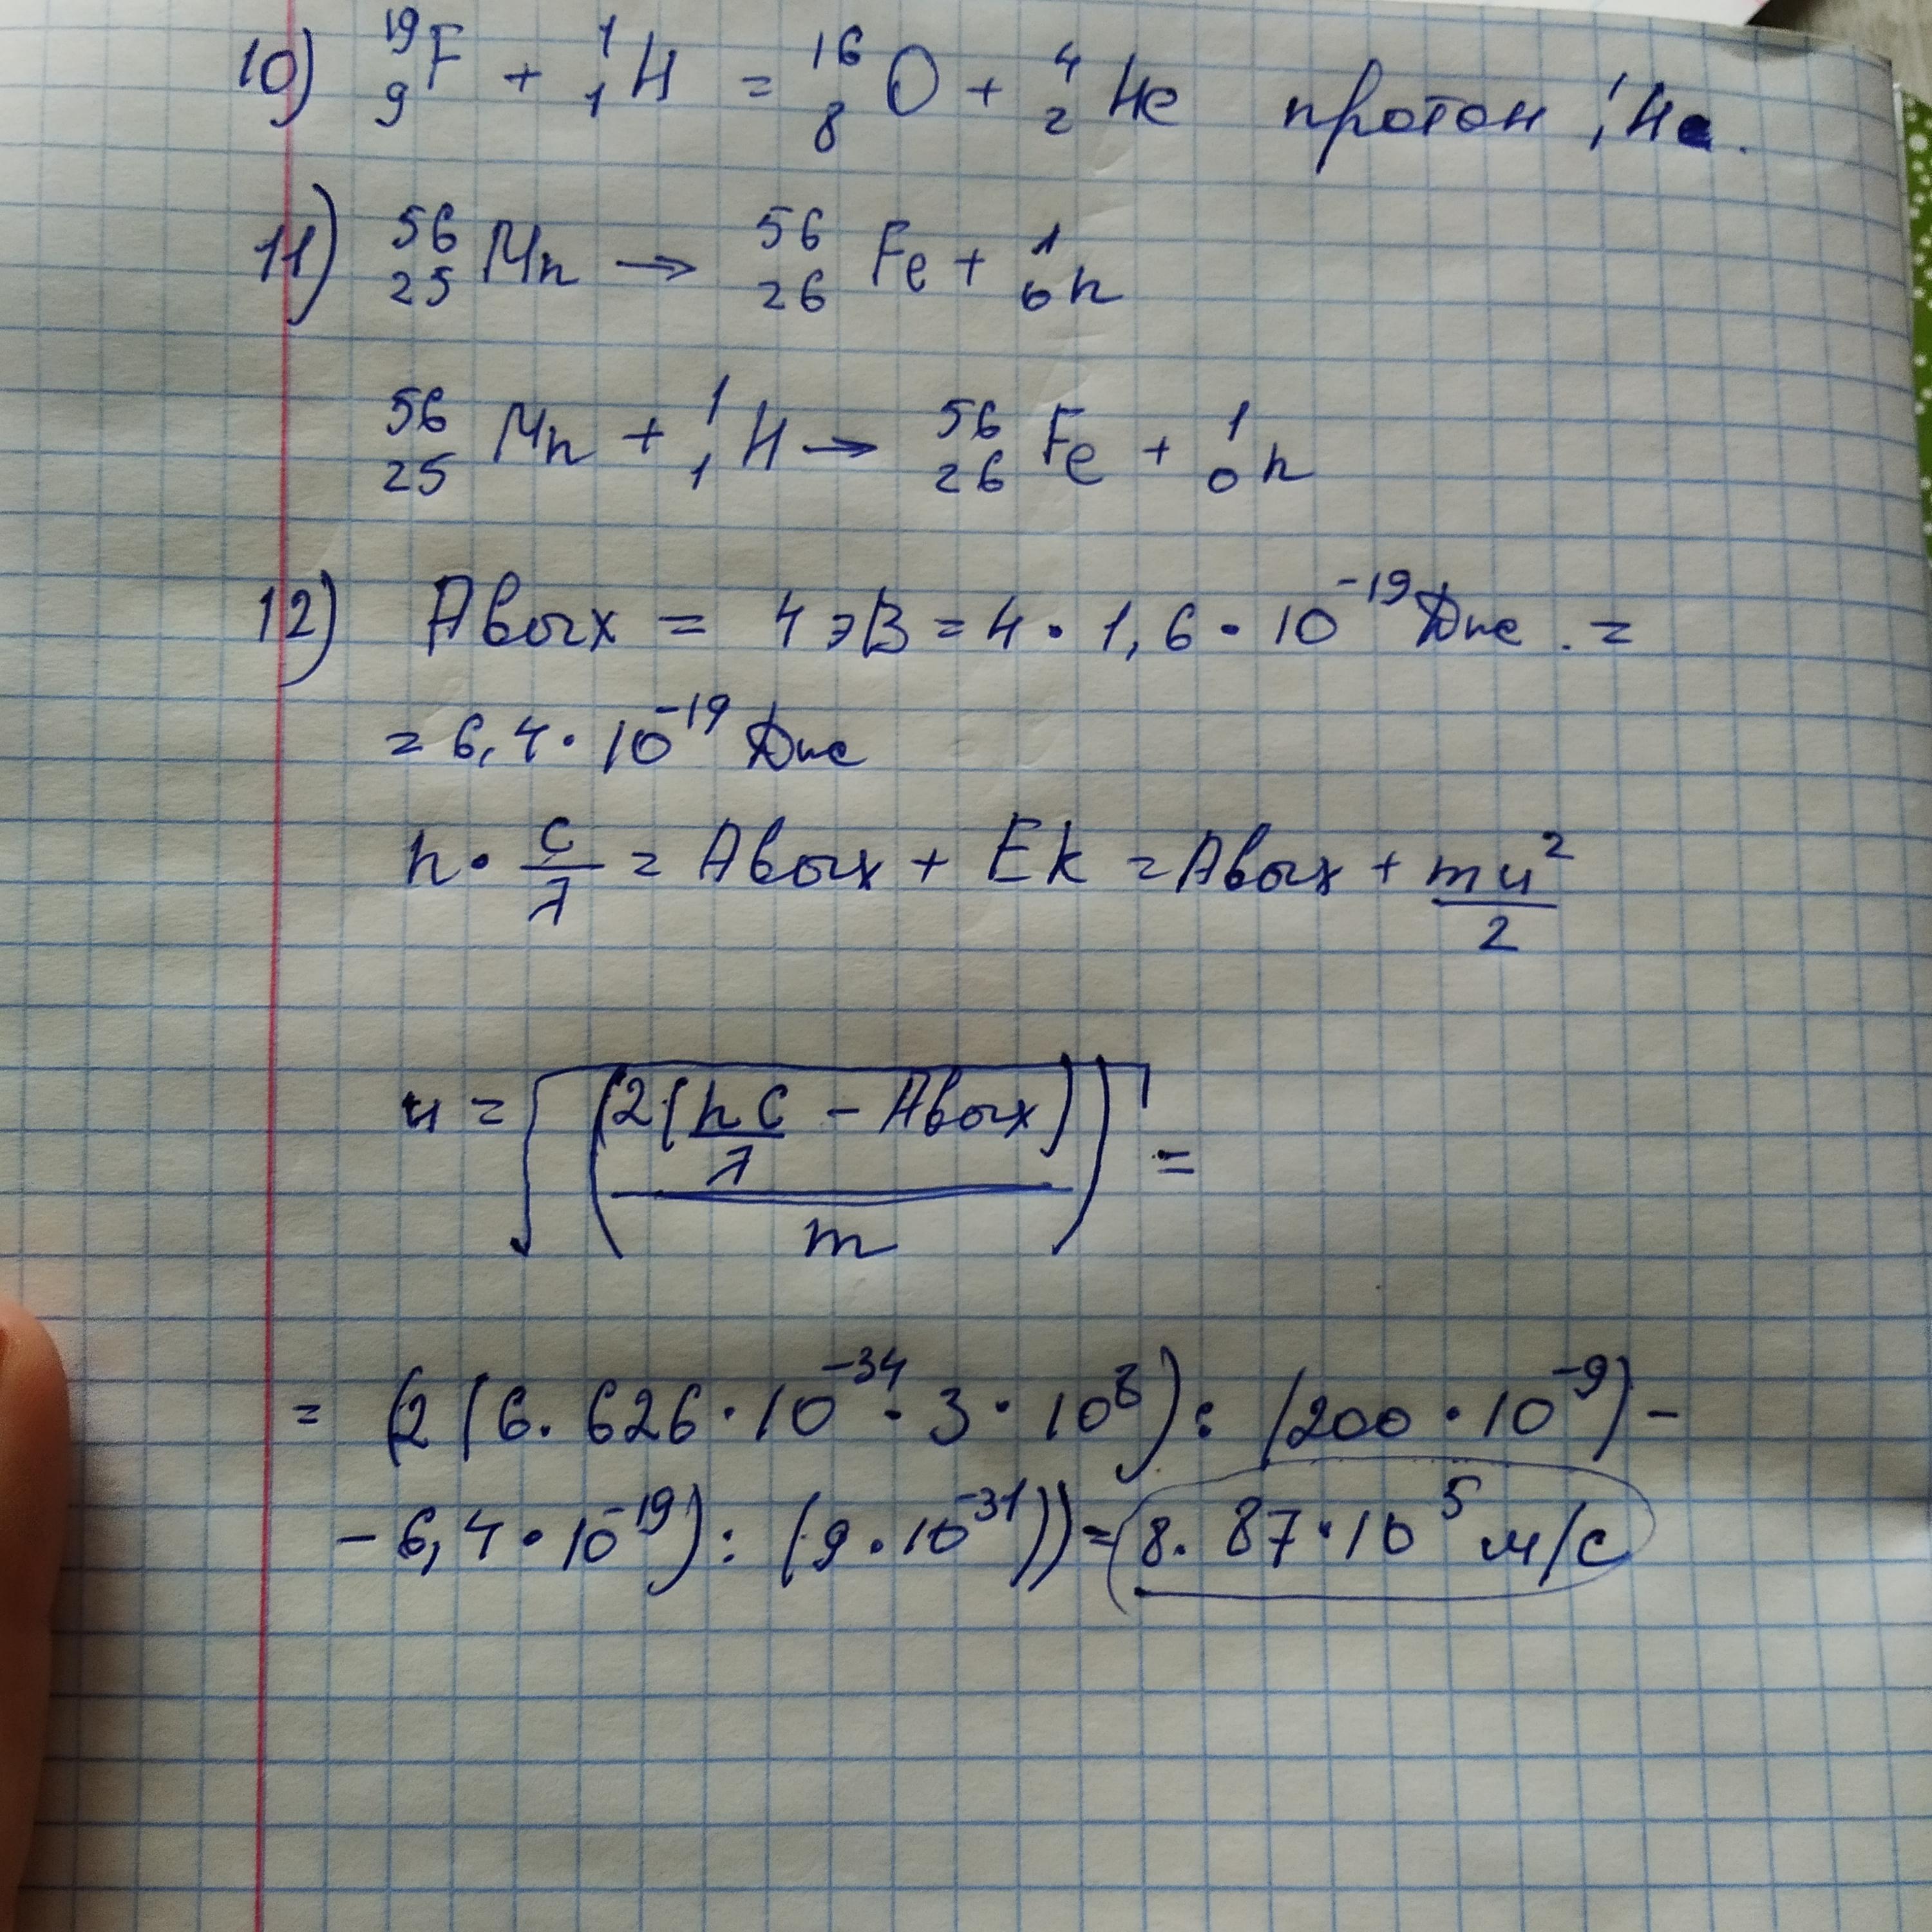 10) ¹⁹₉F + ¹₁H = ¹⁶₈O + ⁴₂He протон ¹₁H.
11) ⁵⁶₂₅Mn → ⁵⁶₂₆Fe + ¹₀n
⁵⁶₂₅Mn + ¹₁H → ⁵⁶₂₆Fe + ¹₀n
12) Aвых = 4 эВ = 4 · 1,6 · 10⁻¹⁹ Дж. =
= 6,4 · 10⁻¹⁹ Дж
h · c/λ = Aвых + Ek = Aвых + mu²/2
u = √((2(hc/λ − Aвых))/m) =
= (2(6.626 · 10⁻³⁴ · 3 · 10⁸) : (200 · 10⁻⁹) −
− 6,4 · 10⁻¹⁹) : (9 · 10⁻³¹)) = 8.87 · 10⁵ м/с